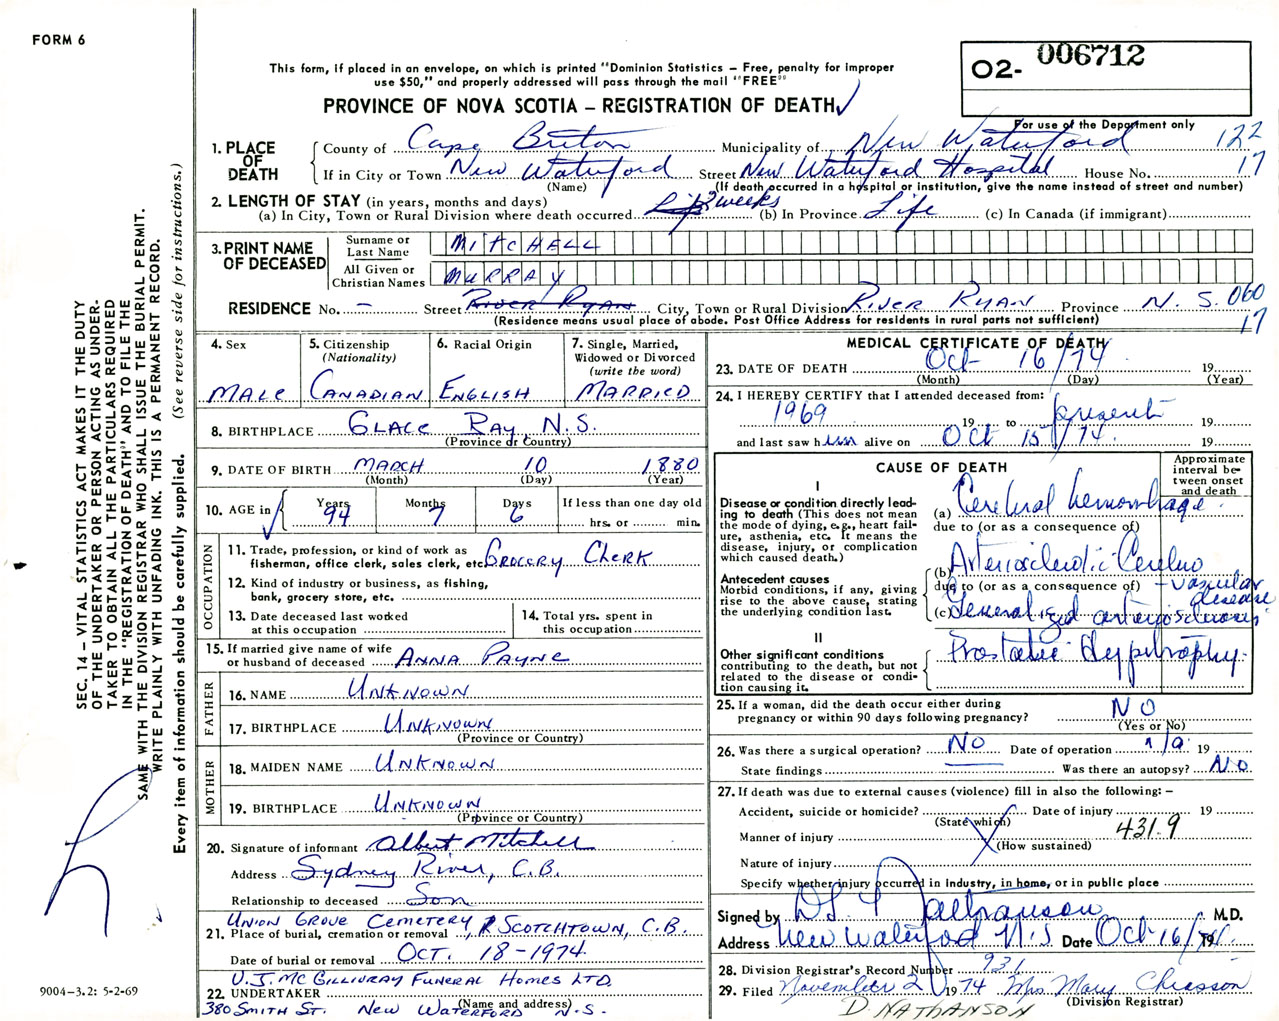 FORM 6
This form, if placed in an envelope, on which is printed "Dominion Statistics – Free, penalty for improper
use $50," and properly addressed will pass through the mail "FREE"
PROVINCE OF NOVA SCOTIA – REGISTRATION OF DEATH
O2- 006712
For use of the Department only
1. PLACE OF DEATH
County of Cape Briton Municipality of New Waterford 122
If in City or Town New Waterford Street New Waterford Hospital House No. 17
(Name) (If death occurred in a hospital or institution, give the name instead of street and number)
2. LENGTH OF STAY (in years, months and days)
(a) In City, Town or Rural Division where death occurred 2 weeks (b) In Province Life (c) In Canada (if immigrant)
3. PRINT NAME OF DECEASED
Surname or Last Name MITCHELL
All Given or Christian Names MURRAY
RESIDENCE No. – Street River Ryan City, Town or Rural Division River Ryan Province N.S. 060
(Residence means usual place of abode. Post Office Address for residents in rural parts not sufficient) 17
4. Sex
MALE
5. Citizenship
(Nationality)
CANADIAN
6. Racial Origin
ENGLISH
7. Single, Married,
Widowed or Divorced
(write the word)
MARRIED
8. BIRTHPLACE GLACE BAY, N.S.
(Province or Country)
9. DATE OF BIRTH MARCH 10 1880
(Month) (Day) (Year)
10. AGE in Years 94 Months 7 Days 6 If less than one day old
hrs. or min.
OCCUPATION
11. Trade, profession, or kind of work as
fisherman, office clerk, sales clerk, etc. GROCERY CLERK
12. Kind of industry or business, as fishing,
bank, grocery store, etc.
13. Date deceased last worked
at this occupation
14. Total yrs. spent in
this occupation
15. If married give name of wife
or husband of deceased ANNA PAYNE
FATHER
16. NAME UNKNOWN
17. BIRTHPLACE UNKNOWN
(Province or Country)
MOTHER
18. MAIDEN NAME UNKNOWN
19. BIRTHPLACE UNKNOWN
(Province or Country)
20. Signature of informant Albert Mitchell
Address Sydney River, C.B.
Relationship to deceased Son
UNION GROVE CEMETERY, SCOTCHTOWN, C.B.
21. Place of burial, cremation or removal
Date of burial or removal OCT. 18-1974
V.J. MCGILLIVRAY FUNERAL HOMES LTD.
22. UNDERTAKER (Name and address)
380 SMITH ST. NEW WATERFORD N.S.
MEDICAL CERTIFICATE OF DEATH
23. DATE OF DEATH Oct 16/74 19
(Month) (Day) (Year)
24. I HEREBY CERTIFY that I attended deceased from:
1969 19 to present 19
and last saw him alive on Oct 15/74 19
CAUSE OF DEATH
Approximate interval between onset and death
I
Disease or condition directly leading to death (This does not mean the mode of dying, e.g., heart failure, asthenia, etc. It means the disease, injury, or complication which caused death.)
(a) Cerebral hemorrhage
due to (or as a consequence of)
Antecedent causes
Morbid conditions, if any, giving rise to the above cause, stating the underlying condition last.
(b) Arteriosclerotic Cerebro
due to (or as a consequence of) - vascular disease
(c) Generalized arteriosclerosis
II
Other significant conditions
contributing to the death, but not related to the disease or condition causing it.
Prostatic hypertrophy.
25. If a woman, did the death occur either during
pregnancy or within 90 days following pregnancy? NO
(Yes or No)
26. Was there a surgical operation? NO Date of operation n/a 19
State findings Was there an autopsy? No
27. If death was due to external causes (violence) fill in also the following: –
Accident, suicide or homicide? Date of injury 19
(State which) 431.9
Manner of injury (How sustained)
Nature of injury
Specify whether injury occurred in Industry, in home, or in public place
Signed by D Nathanson M.D.
Address New Waterford N.S Date Oct 16/74 19
28. Division Registrar's Record Number 931
29. Filed November 2 1974 Mrs Mary Chiasson
(Division Registrar)
D. NATHANSON
SEC. 14 – VITAL STATISTICS ACT MAKES IT THE DUTY
OF THE UNDERTAKER OR PERSON ACTING AS UNDERTAKER TO OBTAIN ALL THE PARTICULARS REQUIRED
IN THE "REGISTRATION OF DEATH" AND TO FILE THE
SAME WITH THE DIVISION REGISTRAR WHO SHALL ISSUE THE BURIAL PERMIT.
WRITE PLAINLY WITH UNFADING INK. THIS IS A PERMANENT RECORD.
Every item of information should be carefully supplied. (See reverse side for instructions.)
9004-3.2: 5-2-69